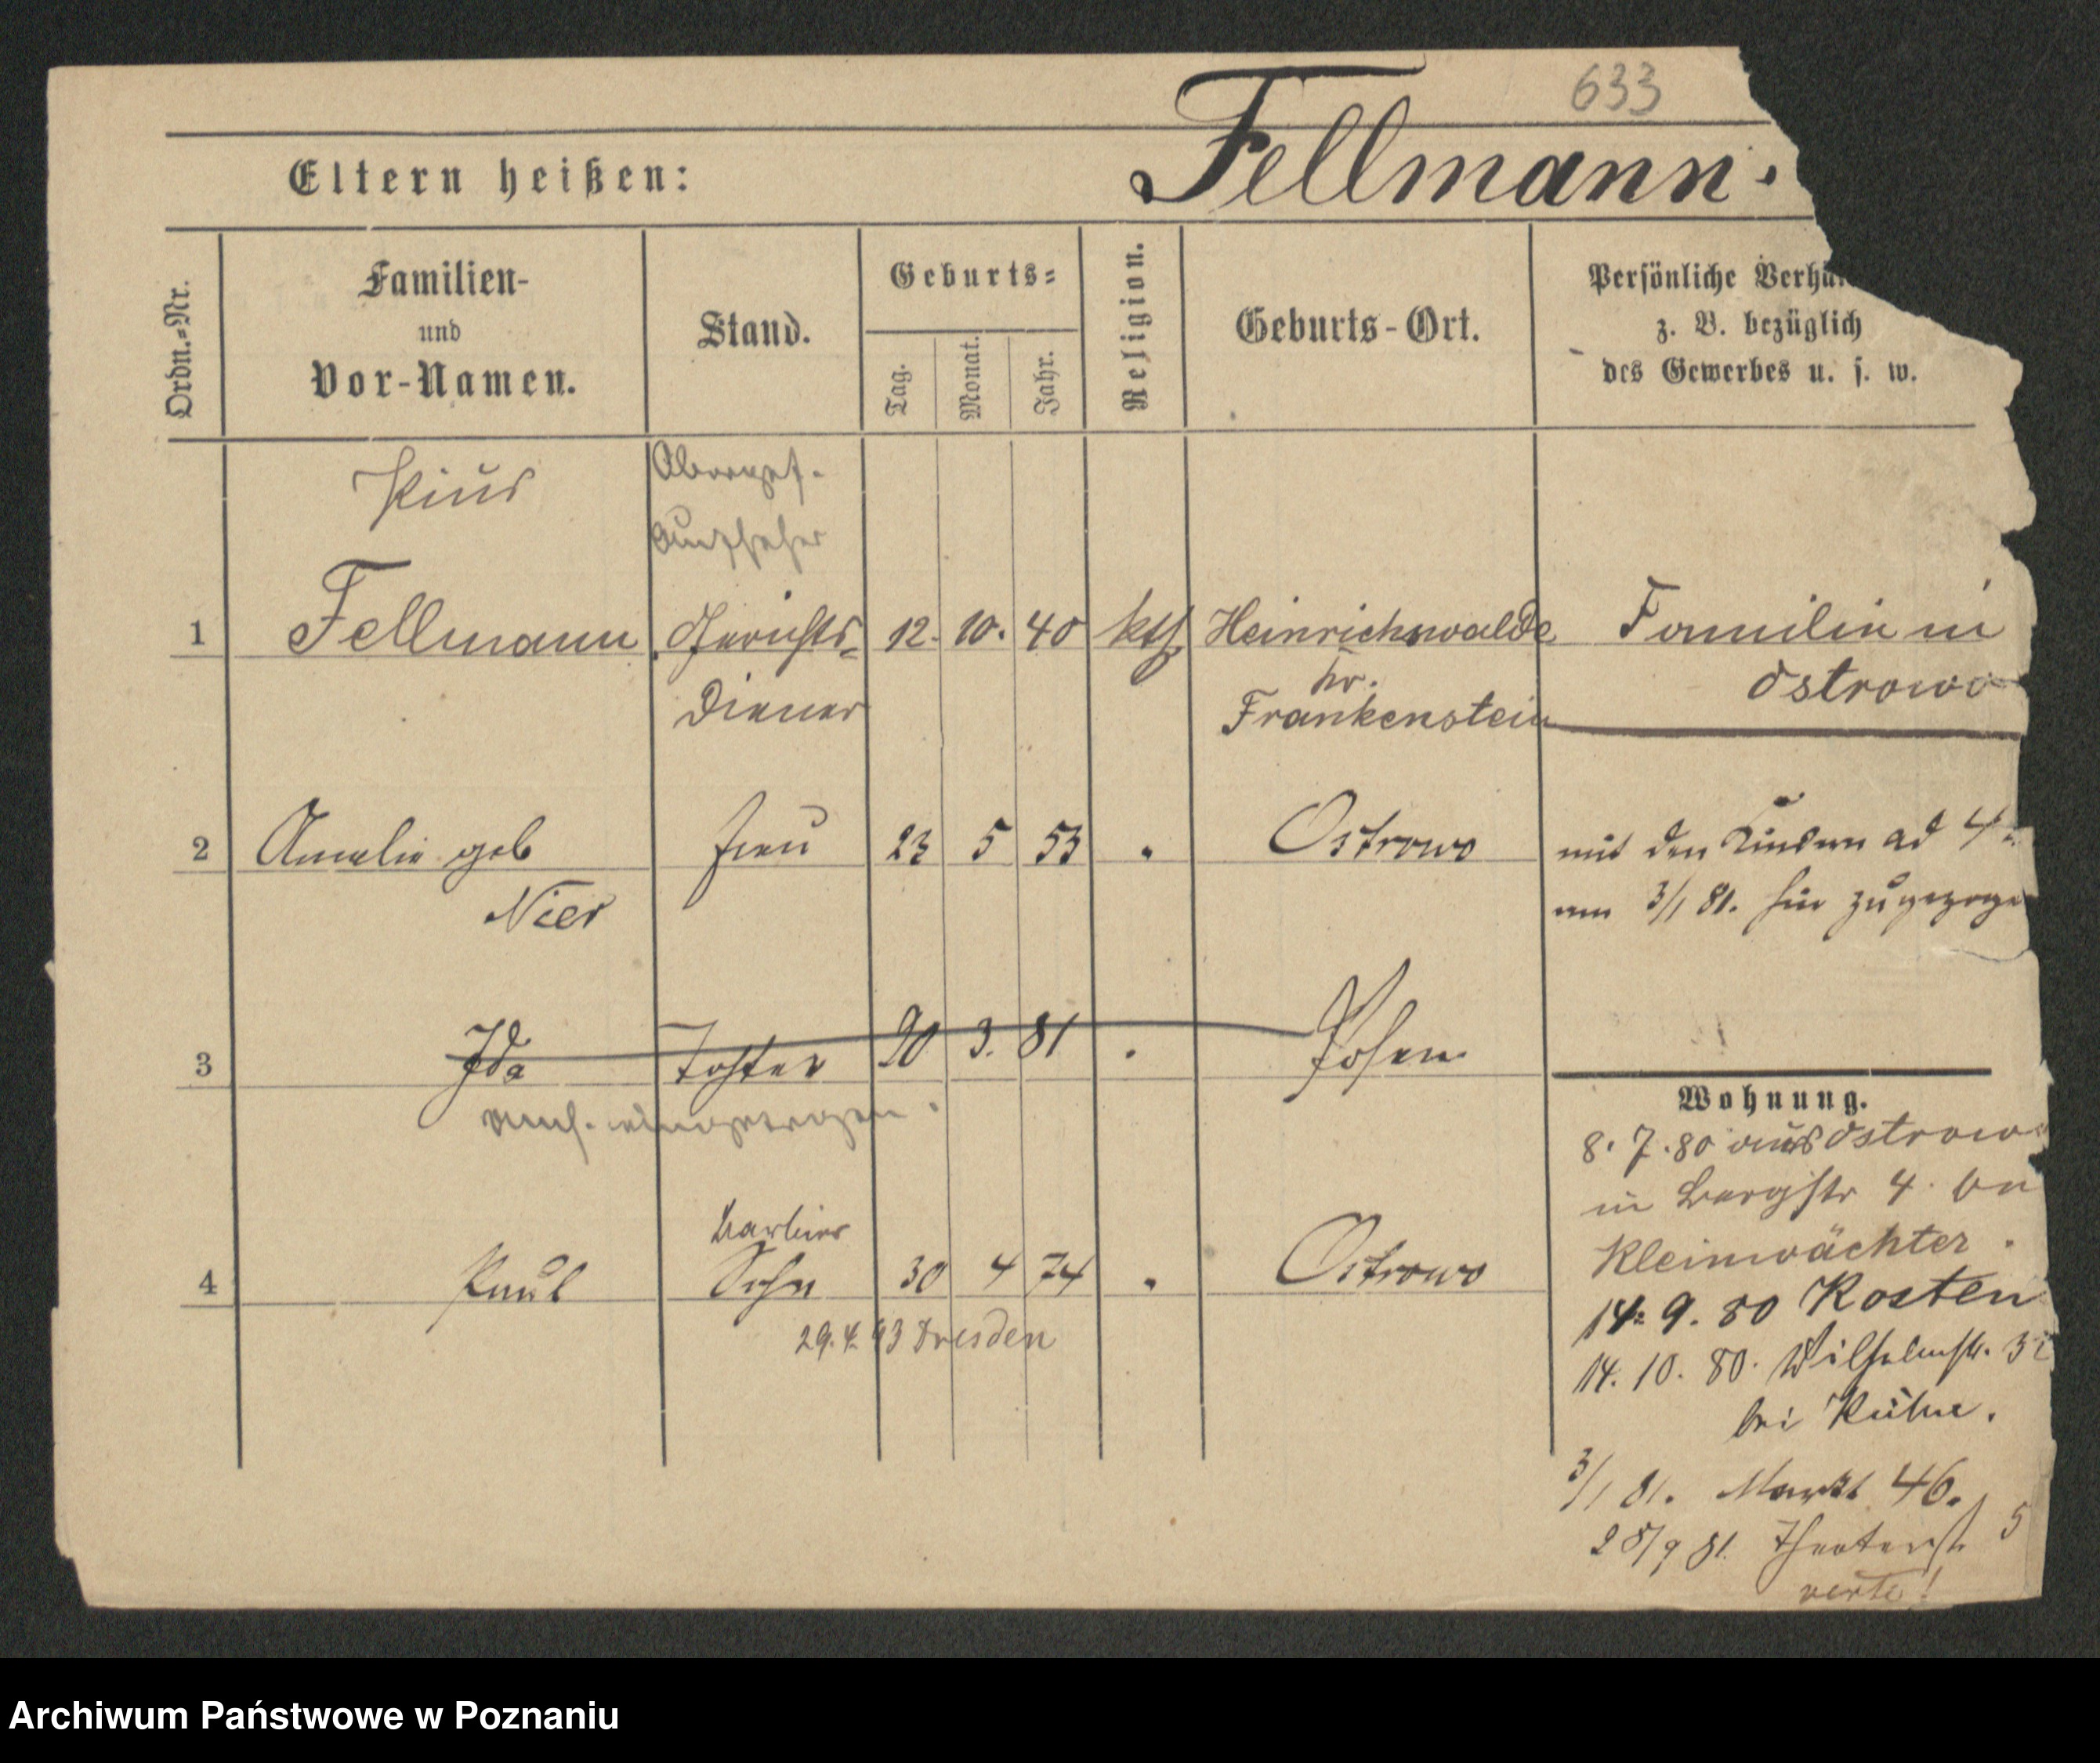 633
Eltern heißen: Fellmann.
Ordn.=Nr.
Familien-
und
Vor-Namen.
Stand.
Geburts=
Tag.
Monat.
Jahr.
Religion.
Geburts-Ort.
Persönliche Verhäl
z. B. bezüglich
des Gewerbes u. s. w.
Pius
aufseher
1 Fellmann Gerichts= 12. 10. 40 kth Heinrichswalde Familie in
Diener Kr. Ostrowo
Frankenstein
2 Amalie geb Frau 23 5 53 " Ostrowo mit den Kindern ad 4
Nier am 3/1 81. hier zugezoge
3 Ida Tochter 20 3. 81 " Posen
nach. eingetragen.
Wohnung.
8. 7. 80 aus Ostrow
in Bergstr 4. bei
Kleinwächter.
barbier
4 Paul Sohn 30 4 74 " Ostrowo
29.4.93 Dresden
14. 9. 80 Kosten
14. 10. 80. Wilhelmstr. 3
bei Kühne.
3/1 81. Markt 46.
28/9 81. Theaterstr 5
verte!
Archiwum Państwowe w Poznaniu